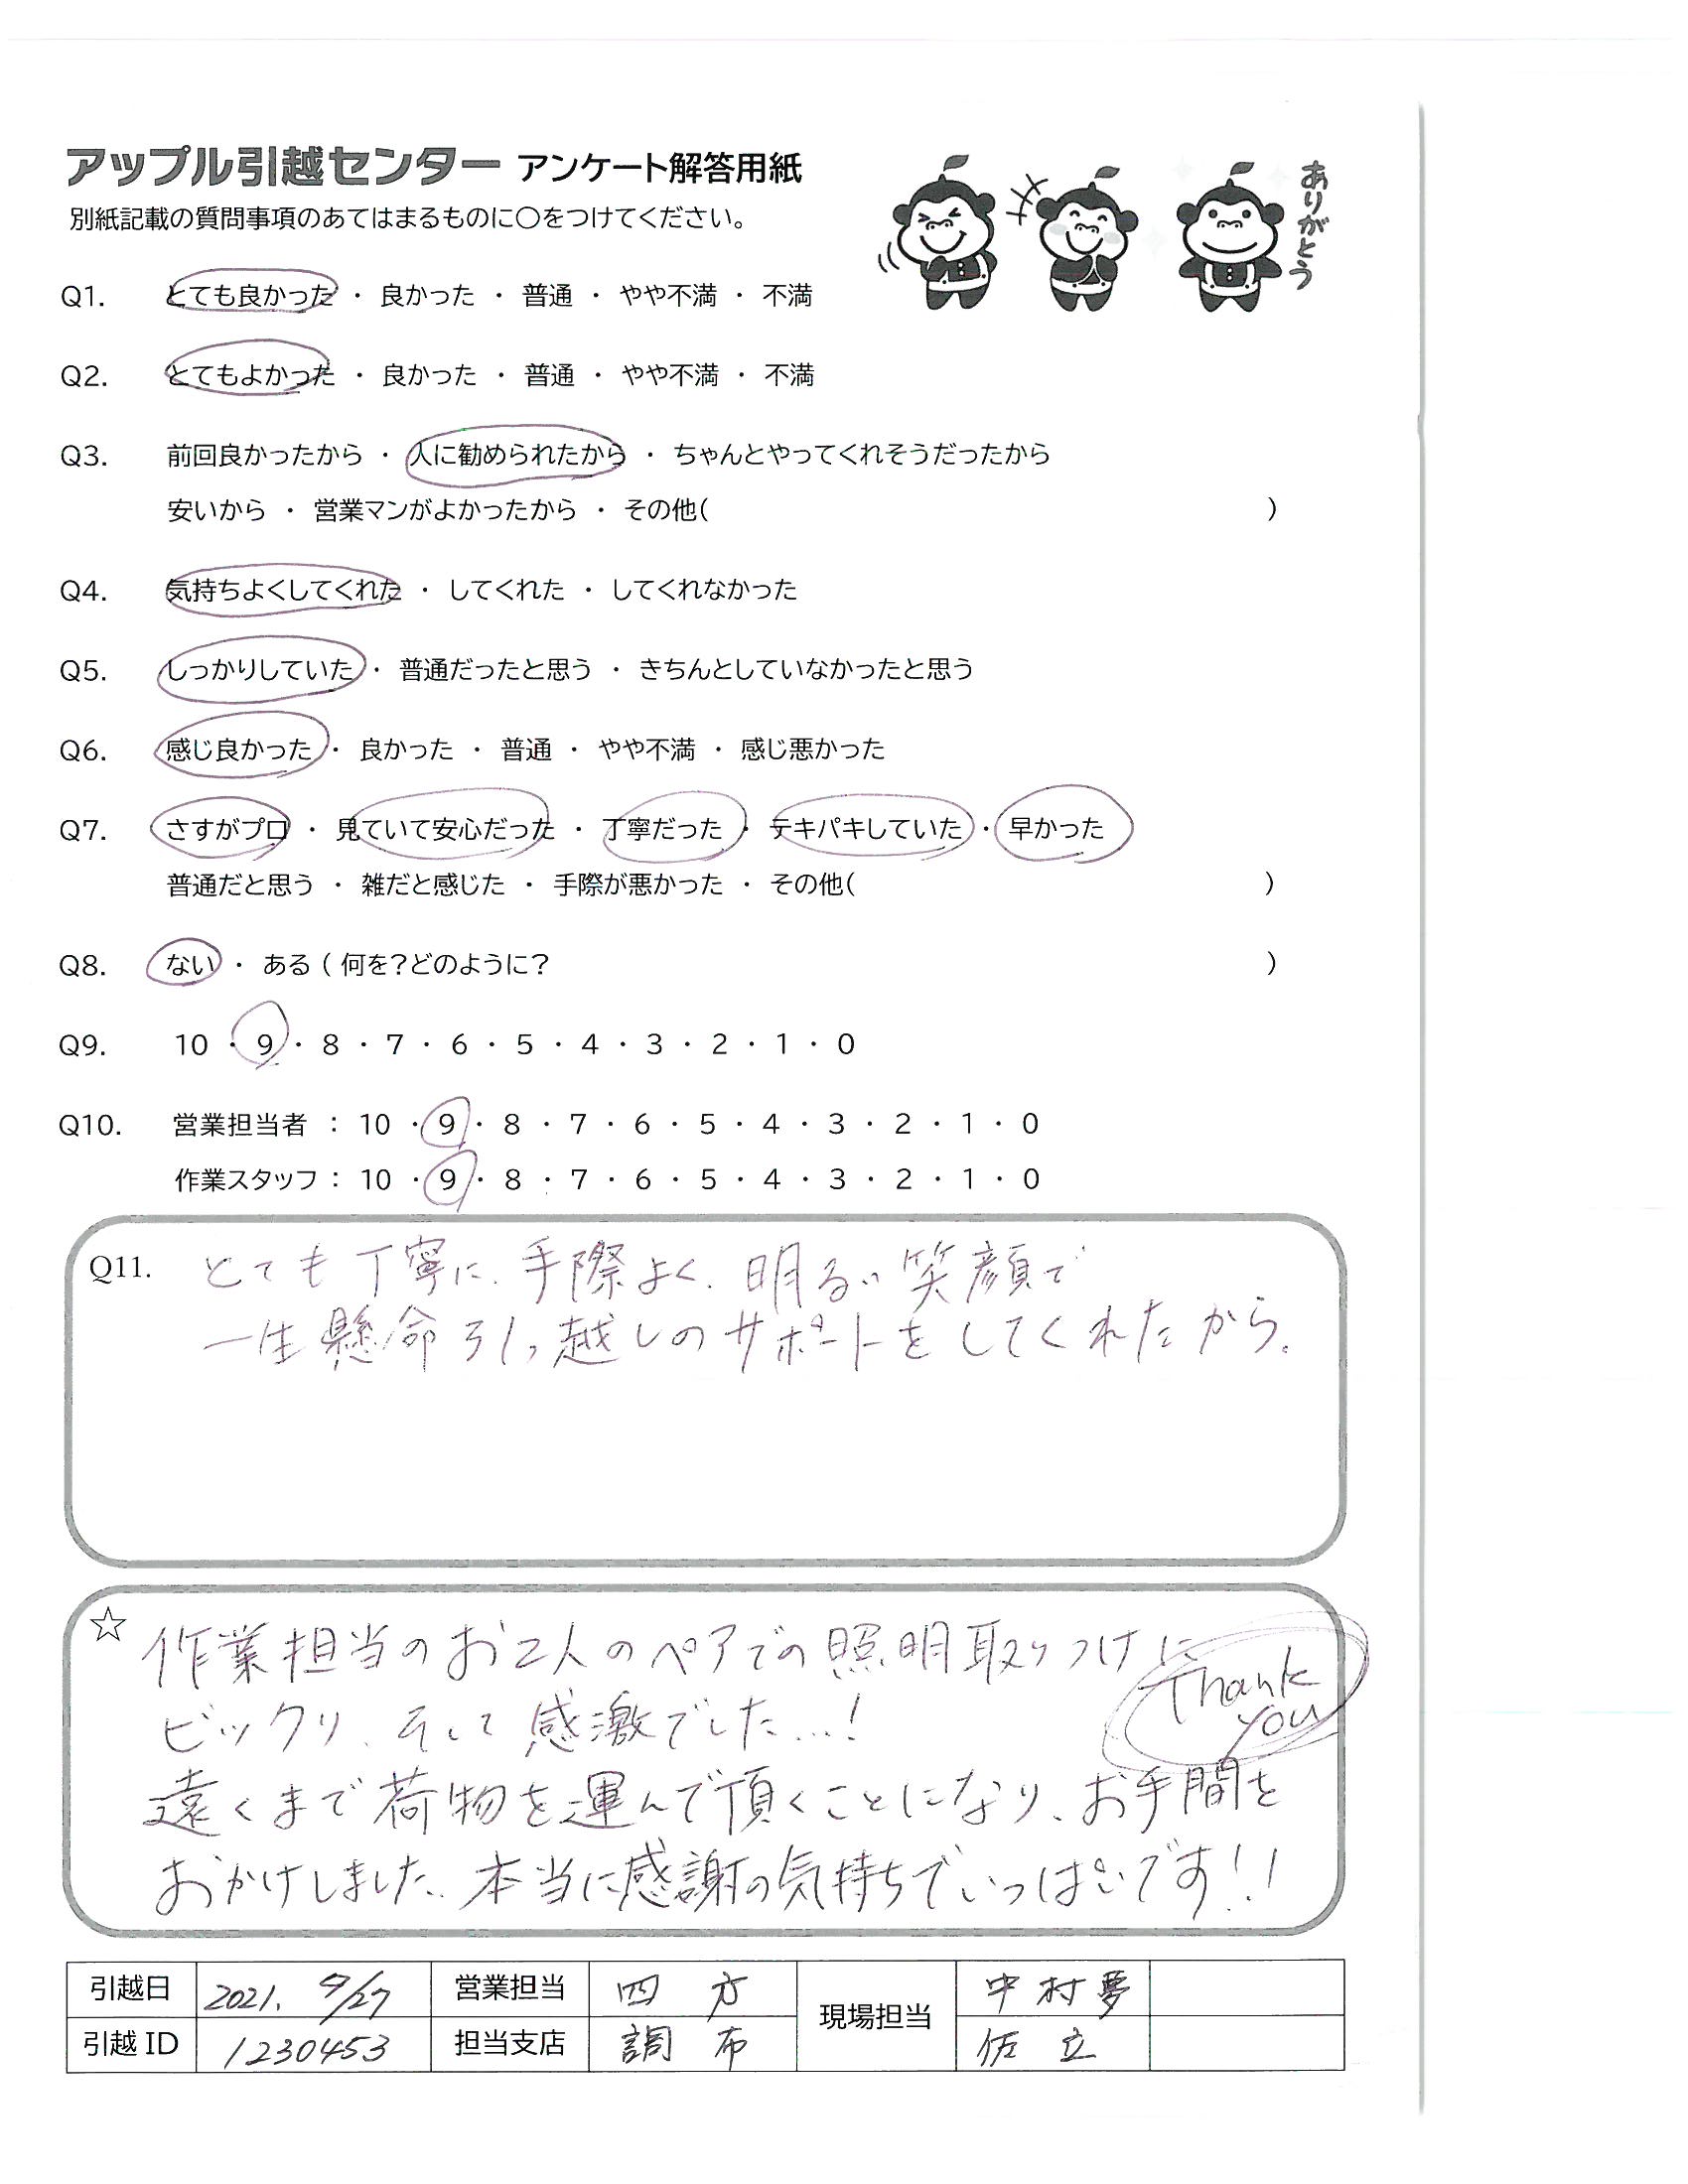 アップル引越センター アンケート解答用紙
別紙記載の質問事項のあてはまるものに〇をつけてください。
ありがとう
Q1. とても良かった ・ 良かった ・ 普通 ・ やや不満 ・ 不満
Q2. とてもよかった ・ 良かった ・ 普通 ・ やや不満 ・ 不満
Q3. 前回良かったから ・ 人に勧められたから ・ ちゃんとやってくれそうだったから
安いから ・ 営業マンがよかったから ・ その他( )
Q4. 気持ちよくしてくれた ・ してくれた ・ してくれなかった
Q5. しっかりしていた ・ 普通だったと思う ・ きちんとしていなかったと思う
Q6. 感じ良かった ・ 良かった ・ 普通 ・ やや不満 ・ 感じ悪かった
Q7. さすがプロ ・ 見ていて安心だった ・ 丁寧だった ・ テキパキしていた ・ 早かった
普通だと思う ・ 雑だと感じた ・ 手際が悪かった ・ その他( )
Q8. ない ・ ある ( 何を?どのように? )
Q9. 10 ・ 9 ・ 8 ・ 7 ・ 6 ・ 5 ・ 4 ・ 3 ・ 2 ・ 1 ・ 0
Q10. 営業担当者 : 10 ・ 9 ・ 8 ・ 7 ・ 6 ・ 5 ・ 4 ・ 3 ・ 2 ・ 1 ・ 0
作業スタッフ : 10 ・ 9 ・ 8 ・ 7 ・ 6 ・ 5 ・ 4 ・ 3 ・ 2 ・ 1 ・ 0
Q11. とても丁寧に、手際よく、明るい笑顔で
一生懸命引っ越しのサポートをしてくれたから。
☆ 作業担当のお2人のペアでの照明取りつけに
ビックリ、そして感激でした…!
Thank
you
遠くまで荷物を運んで頂くことになり、お手間を
おかけしました。本当に感謝の気持ちでいっぱいです!!
引越日 2021. 9/27 営業担当 四方 現場担当 中村夢
引越 ID 1230453 担当支店 調布 佐立